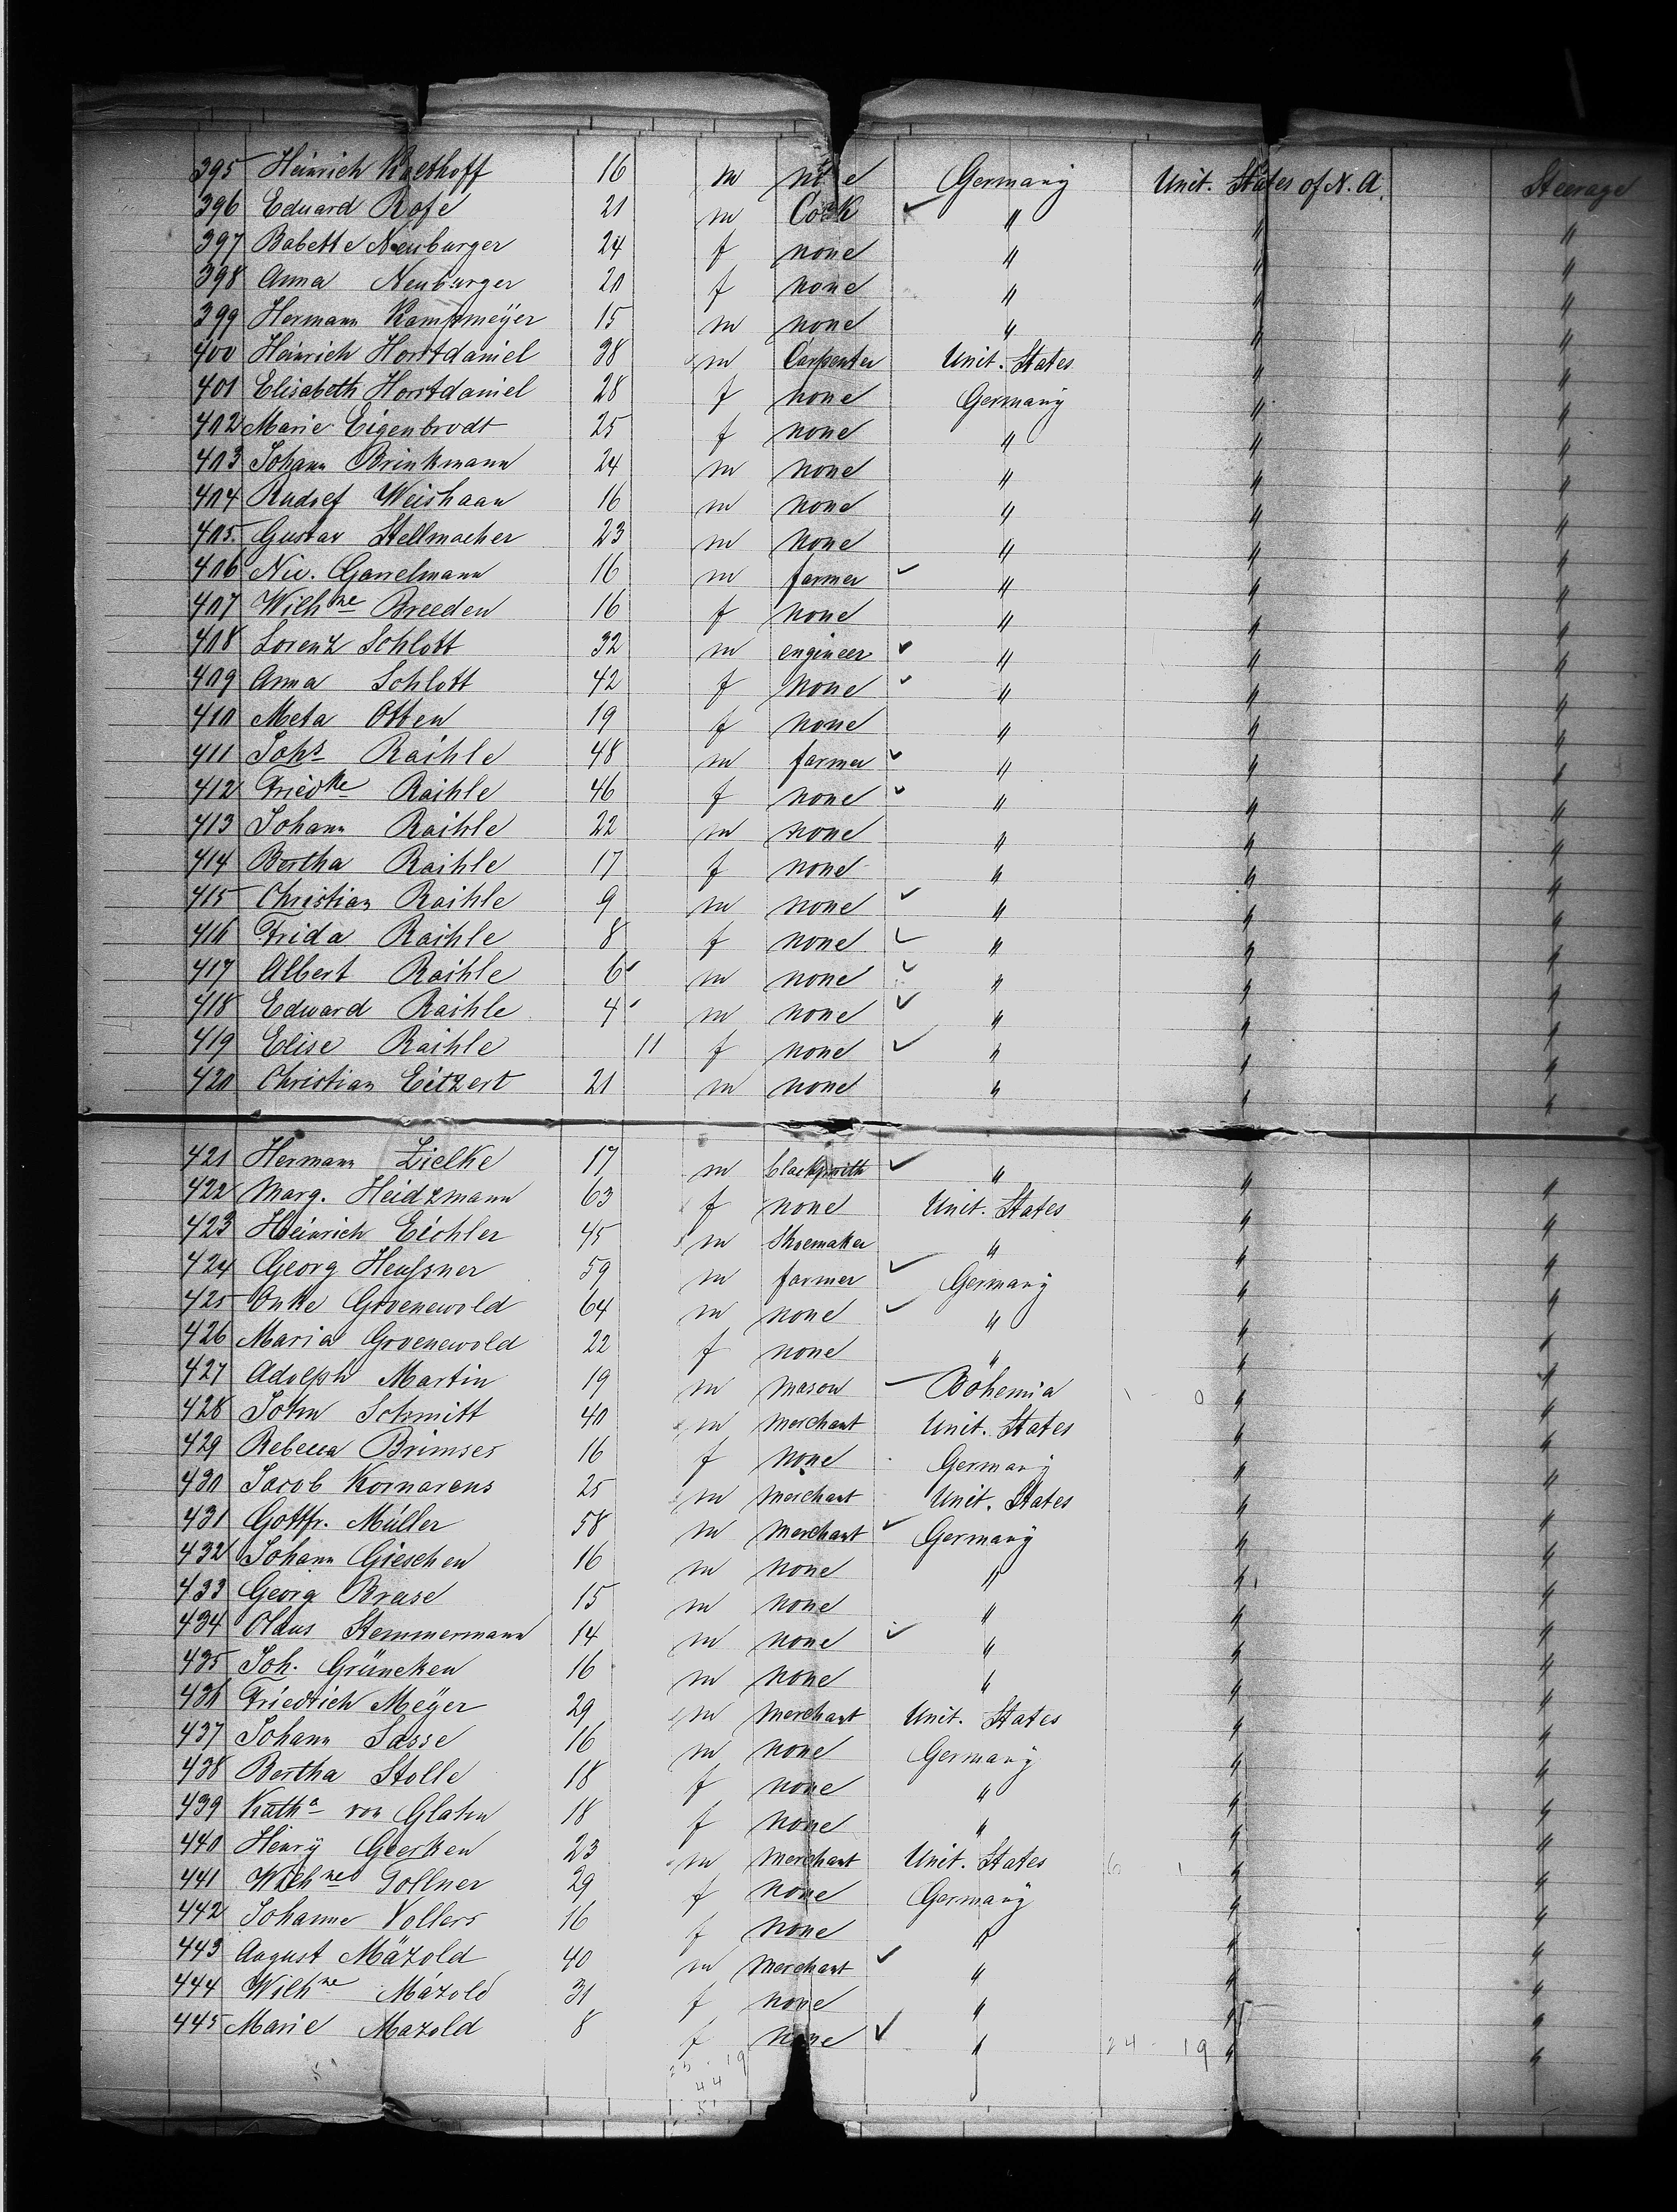 395 Heinrich Kalthoff 16 m n e Germany Unit. States of N. A. Steerage
396 Eduard Rose 21 m Cook ✓ " " "
397 Babette Neuburger 24 f none " " "
398 Anna Neuburger 20 f none " " "
399 Hermann Kampmeÿer 15 m none " " "
400 Heinrich Horstdaniel 38 m Carpenter Unit. States " "
401 Elisabeth Horstdaniel 28 f none Germany " "
402 Marie Eigenbrodt 25 f none " " "
403 Johann Brinkmann 24 m none " " "
404 Rudolf Weishaan 16 m none " " "
405. Gustav Stellmacher 23 m none " " "
406 Nic. Garrelmann 16 m farmer ✓ " " "
407 Wilhne Breeden 16 f none " " "
408 Lorenz Schlott 32 m engineer ✓ " " "
409 Anna Schlott 42 f none ✓ " " "
410 Meta Otten 19 f none " " "
411 Johs Raihle 48 m farmer ✓ " " "
412 Friedke Raihle 46 f none ✓ " " "
413 Johann Raihle 22 m none " " "
414 Bertha Raihle 17 f none " " "
415 Christian Raihle 9 m none ✓ " " "
416 Frida Raihle 8 f none ✓ " " "
417 Albert Raihle 6 m none ✓ " " "
418 Edward Raihle 4 m none ✓ " " "
419 Elise Raihle 11 f none ✓ " " "
420 Christian Eitzert 21 m none " " "
421 Hermann Zielke 17 m blacksmith ✓ " " "
422 Marg. Heidzmann 63 f none Unit. States " "
423 Heinrich Eichler 45 m Shoemaker " " "
424 Georg Heußner 59 m farmer ✓ Germany " "
425 Onke Groenewold 64 m none ✓ " " "
426 Maria Groenewold 22 f none " " "
427 Adolph Martin 19 m mason ✓ Bohemia 1 0 " "
428 John Schmitt 40 m merchant Unit. States " "
429 Rebecca Brimses 16 f none Germany " "
430 Jacob Kornarens 25 m merchant Unit. States " "
431 Gottfr. Müller 58 m merchant ✓ Germany " "
432 Johann Gieschen 16 m none " " "
433 Georg Brase 15 m none " " "
434 Claus Stemmermann 14 m none ✓ " " "
435 Joh. Grüncken 16 m none " " "
436 Friedrich Meÿer 29 m merchant Unit. States " "
437 Johann Sasse 16 m none Germany " "
438 Bertha Stolle 18 f none " " "
439 Katha von Glahn 18 f none " " "
440 Henrÿ Geerken 23 m merchant Unit. States 6 1 " "
441 Wilhne Gollner 29 f none Germany " "
442 Johanne Vollers 16 f none " " "
443 August Mäzold 40 m merchant ✓ " " "
444 Wilhne Mäzold 31 f none " " "
445 Marie Mazold 8 f none ✓ " 24 - 19 " "
25 - 19
44